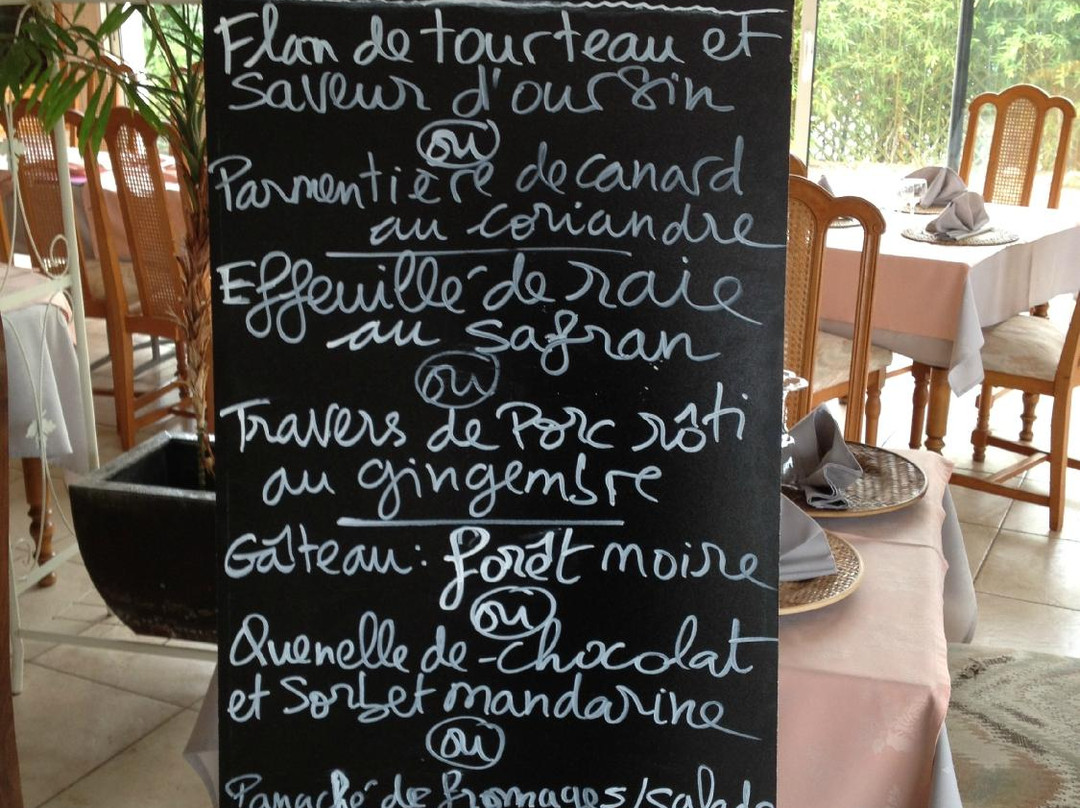 Flan de tourteau et
saveur d'oursin
ou
Parmentière de canard
au coriandre
Effeuillé de raie
au safran
ou
Travers de Porc rôti
au gingembre
Gâteau: forêt noire
ou
Quenelle de chocolat
et Sorbet mandarine
ou
Panaché de fromages/salade